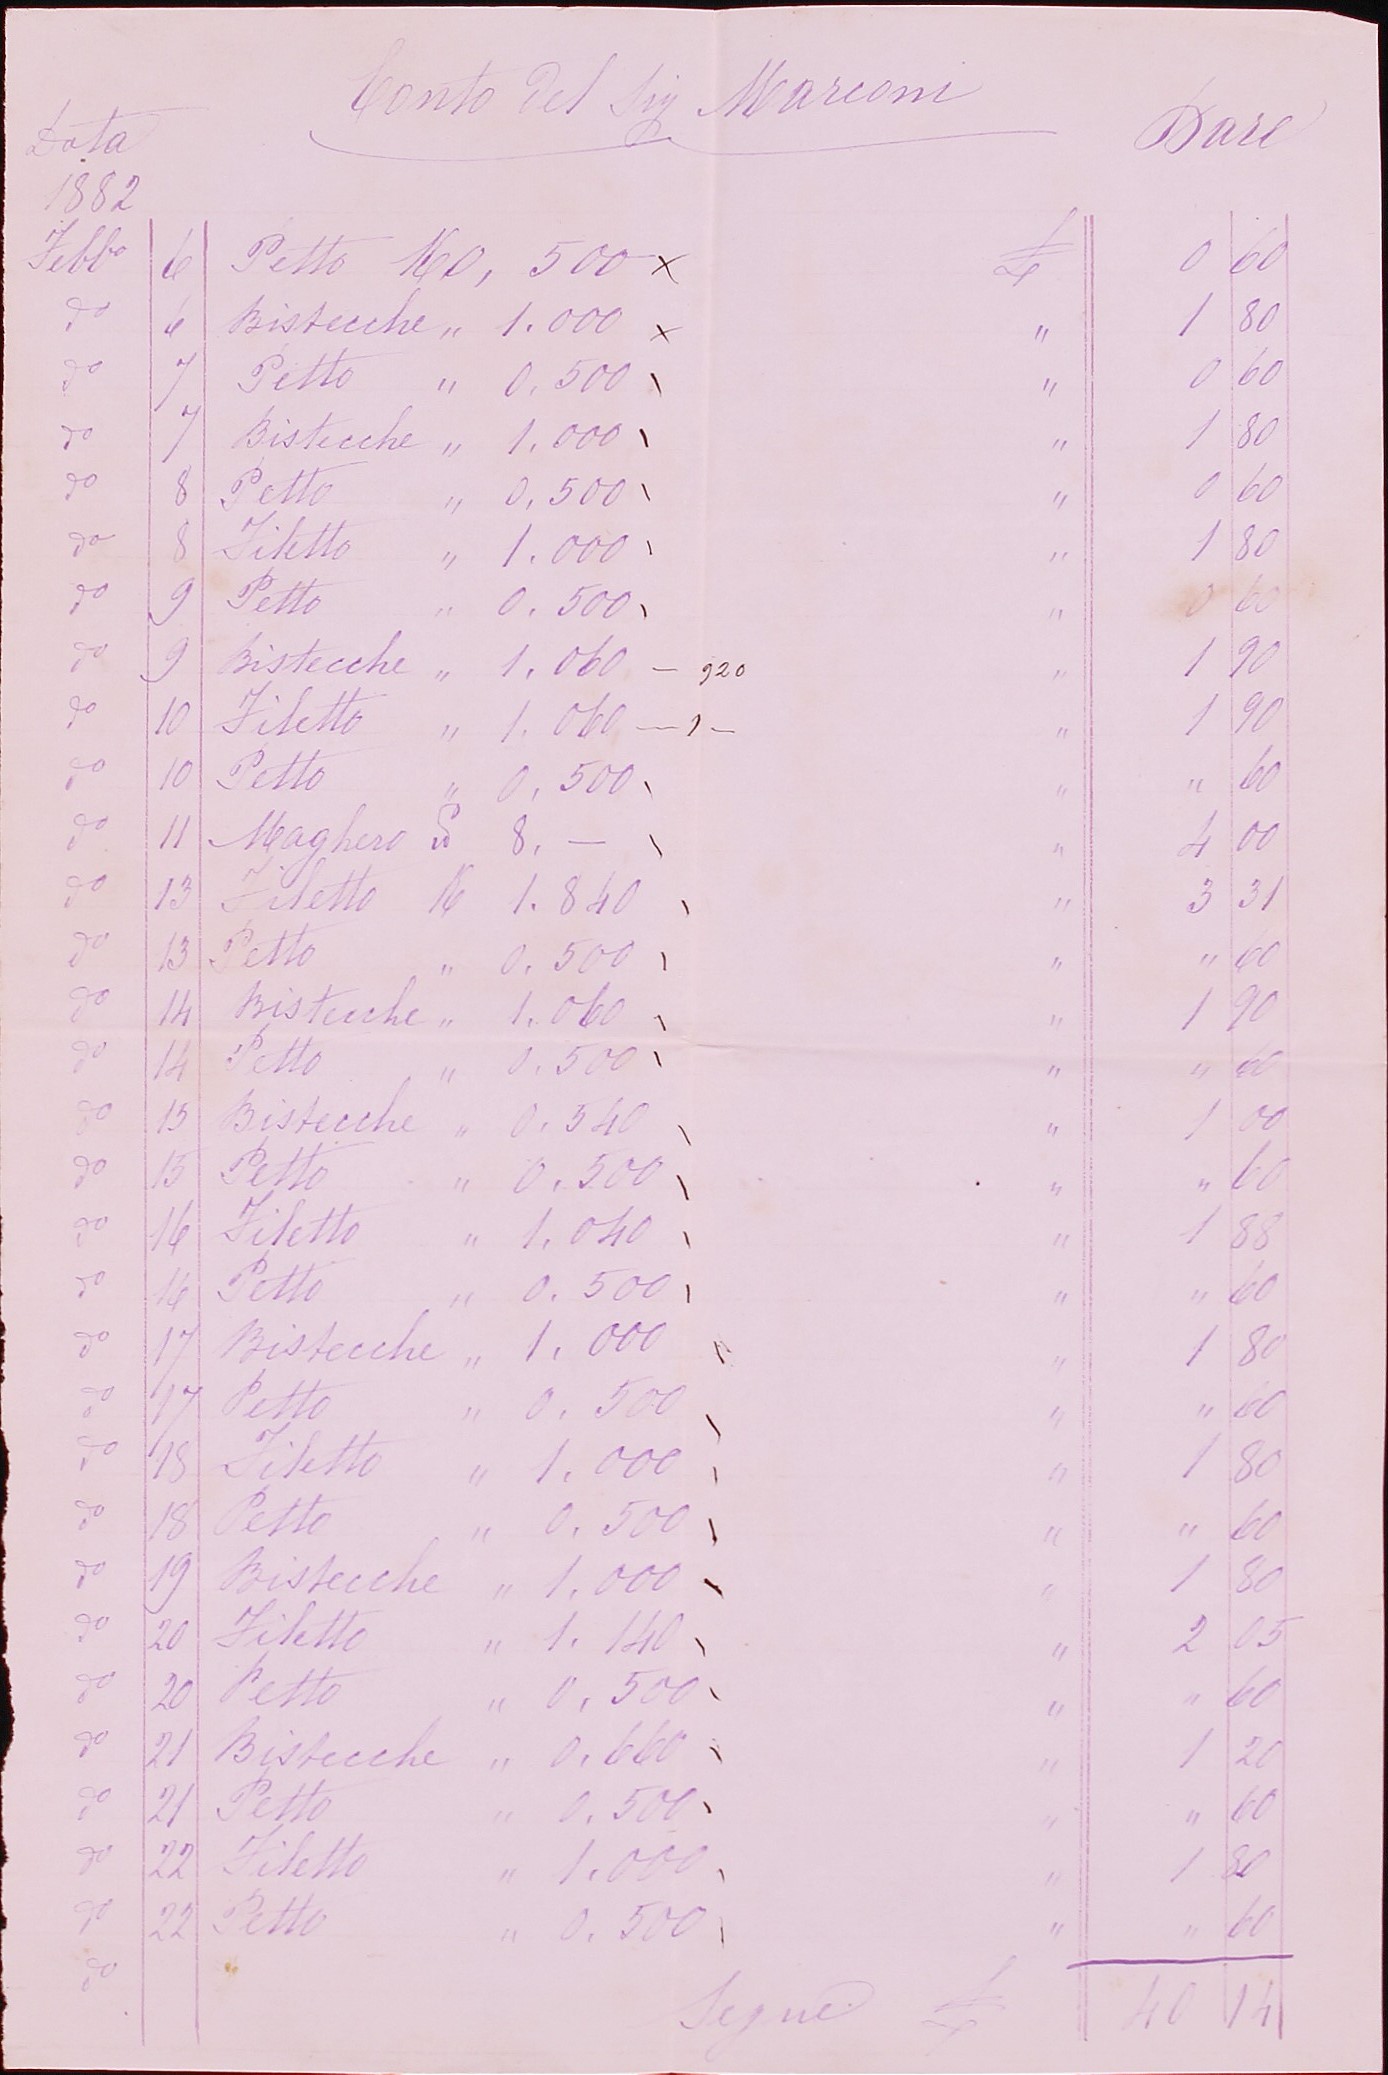 Conto Del Sig Marconi
Data Dare
1882
Febbo 6 Petto K 0, 500 x £ 0 60
do 6 Bistecche " 1.000 x " 1 80
do 7 Petto " 0.500 \ " 0 60
do 7 Bistecche " 1.000 \ " 1 80
do 8 Petto " 0.500 \ " 0 60
do 8 Filetto " 1.000 \ " 1 80
do 9 Petto " 0.500 \ " 0 60
do 9 Bistecche " 1.060 – 920 " 1 90
do 10 Filetto " 1.060 — 1 – " 1 90
do 10 Petto " 0.500 \ " " 60
do 11 Maghero 8. — \ " 4 00
do 13 Filetto K 1.840 \ " 3 31
do 13 Petto " 0.500 \ " " 60
do 14 Bistecche " 1.060 \ " 1 90
do 14 Petto " 0.500 \ " " 60
do 15 Bistecche " 0.540 \ " 1 00
do 15 Petto " 0.500 \ " " 60
do 16 Filetto " 1.040 \ " 1 88
do 16 Petto " 0.500 \ " " 60
do 17 Bistecche " 1.000 \ " 1 80
do 17 Petto " 0.500 \ " " 60
do 18 Filetto " 1.000 \ " 1 80
do 18 Petto " 0.500 \ " " 60
do 19 Bistecche " 1.000 \ " 1 80
do 20 Filetto " 1.140 \ " 2 05
do 20 Petto " 0.500 \ " " 60
do 21 Bistecche " 0.660 \ " 1 20
do 21 Petto " 0.500 \ " " 60
do 22 Filetto " 1.000 \ " 1 80
do 22 Petto " 0.500 \ " " 60
do
Segue £ 40 14